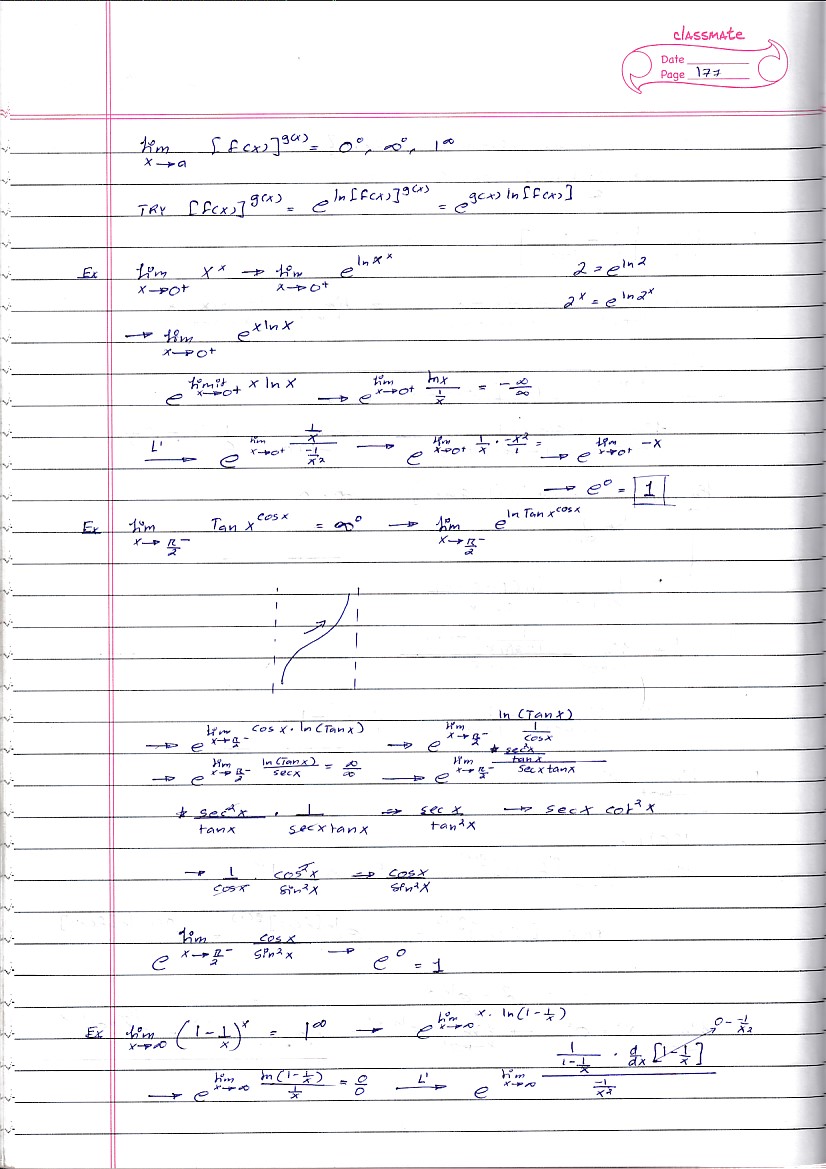 classmate
Date
Page 177
lim x→a [f(x)]^g(x) = 0^0, ∞^0, 1^∞
TRY [f(x)]^g(x) = e^ln[f(x)]^g(x) = e^g(x) ln[f(x)]
Ex lim x→0+ x^x → lim x→0+ e^ln x^x 2 = e^ln2
2^x = e^ln2^x
→ lim x→0+ e^x ln x
e^limit x→0+ x ln x → e^lim x→0+ lnx/(1/x) = -∞/∞
L' → e^lim x→0+ (1/x)/(-1/x^2) → e^lim x→0+ 1/x · -x^2/1 = → e^lim x→0+ -x
→ e^0 = 1
Ex lim x→π/2^- Tan x^cosx = ∞^0 → lim x→π/2^- e^ln Tan x^cosx
→ e^lim x→π/2^- cosx · ln(Tanx) → e^lim x→π/2^- ln(Tanx)/(1/cosx)
→ e^lim x→π/2^- ln(Tanx)/secx = ∞/∞ → e^lim x→π/2^- * (sec^2x/tanx)/(secxtanx)
* sec^2x/tanx · 1/secxtanx ⇒ secx/tan^2x → secx cot^2x
→ 1/cosx · cos^2x/sin^2x ⇒ cosx/sin^2x
e^lim x→π/2^- cosx/sin^2x → e^0 = 1
Ex lim x→∞ (1-1/x)^x = 1^∞ → e^lim x→∞ x · ln(1-1/x) 0 - -1/x^2
→ e^lim x→∞ ln(1-1/x)/(1/x) = 0/0 L' → e^lim x→∞ (1/(1-1/x) · d/dx[1-1/x])/(-1/x^2)